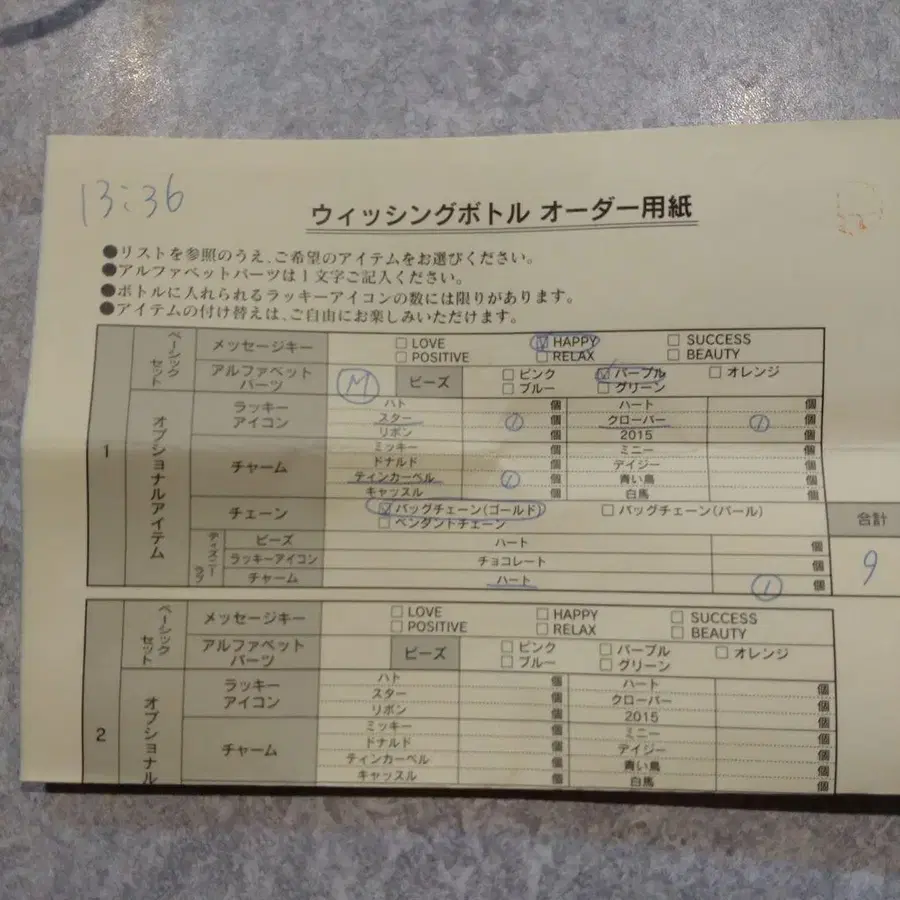 13:36
ウィッシングボトル オーダー用紙
●リストを参照のうえ、ご希望のアイテムをお選びください。
●アルファベットパーツは1文字ご記入ください。
●ボトルに入れられるラッキーアイコンの数には限りがあります。
●アイテムの付け替えは、ご自由にお楽しみいただけます。
1
ベーシックセット
メッセージキー
□ LOVE ☑ HAPPY □ SUCCESS
□ POSITIVE □ RELAX □ BEAUTY
アルファベットパーツ
M
ビーズ
□ ピンク ☑ パープル □ オレンジ
□ ブルー □ グリーン
オプショナルアイテム
ラッキーアイコン
ハト 個 ハート 個
スター 1 個 クローバー 1 個
リボン 個 2015 個
チャーム
ミッキー 個 ミニー 個
ドナルド 個 デイジー 個
ティンカーベル 1 個 青い鳥 個
キャッスル 個 白馬 個
チェーン
☑ バッグチェーン(ゴールド) □ バッグチェーン(パール)
□ ペンダントチェーン
合計
9
ディズニーラブ
ビーズ ハート 個
ラッキーアイコン チョコレート 個
チャーム ハート 1 個
2
ベーシックセット
メッセージキー
□ LOVE □ HAPPY □ SUCCESS
□ POSITIVE □ RELAX □ BEAUTY
アルファベットパーツ
ビーズ
□ ピンク □ パープル □ オレンジ
□ ブルー □ グリーン
オプショナル
ラッキーアイコン
ハト 個 ハート 個
スター 個 クローバー 個
リボン 個 2015 個
チャーム
ミッキー 個 ミニー 個
ドナルド 個 デイジー 個
ティンカーベル 個 青い鳥 個
キャッスル 個 白馬 個